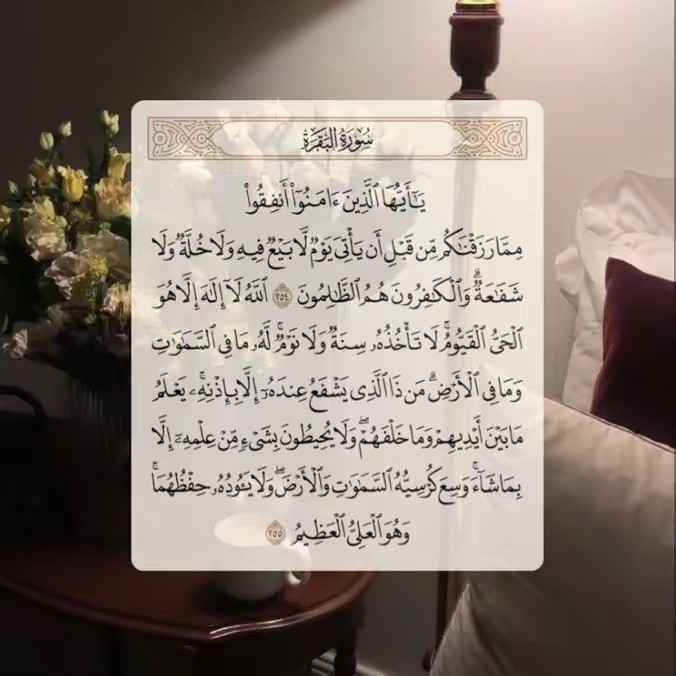 سُورَةُ البَقَرَةِ
يَٰٓأَيُّهَا ٱلَّذِينَ ءَامَنُوٓا۟ أَنفِقُوا۟
مِمَّا رَزَقْنَٰكُم مِّن قَبْلِ أَن يَأْتِىَ يَوْمٌ لَّا بَيْعٌ فِيهِ وَلَا خُلَّةٌ وَلَا
شَفَٰعَةٌ ۗ وَٱلْكَٰفِرُونَ هُمُ ٱلظَّٰلِمُونَ ٢٥٤ ٱللَّهُ لَآ إِلَٰهَ إِلَّا هُوَ
ٱلْحَىُّ ٱلْقَيُّومُ ۚ لَا تَأْخُذُهُۥ سِنَةٌ وَلَا نَوْمٌ ۚ لَّهُۥ مَا فِى ٱلسَّمَٰوَٰتِ
وَمَا فِى ٱلْأَرْضِ ۗ مَن ذَا ٱلَّذِى يَشْفَعُ عِندَهُۥٓ إِلَّا بِإِذْنِهِۦ ۚ يَعْلَمُ
مَا بَيْنَ أَيْدِيهِمْ وَمَا خَلْفَهُمْ ۖ وَلَا يُحِيطُونَ بِشَىْءٍ مِّنْ عِلْمِهِۦٓ إِلَّا
بِمَا شَآءَ ۚ وَسِعَ كُرْسِيُّهُ ٱلسَّمَٰوَٰتِ وَٱلْأَرْضَ ۖ وَلَا يَـُٔودُهُۥ حِفْظُهُمَا ۚ
وَهُوَ ٱلْعَلِىُّ ٱلْعَظِيمُ ٢٥٥